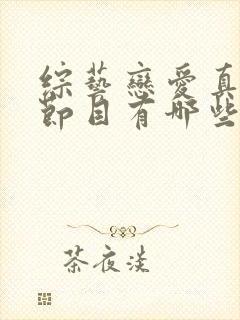 綜藝戀愛真
節目有哪些
茶夜淡